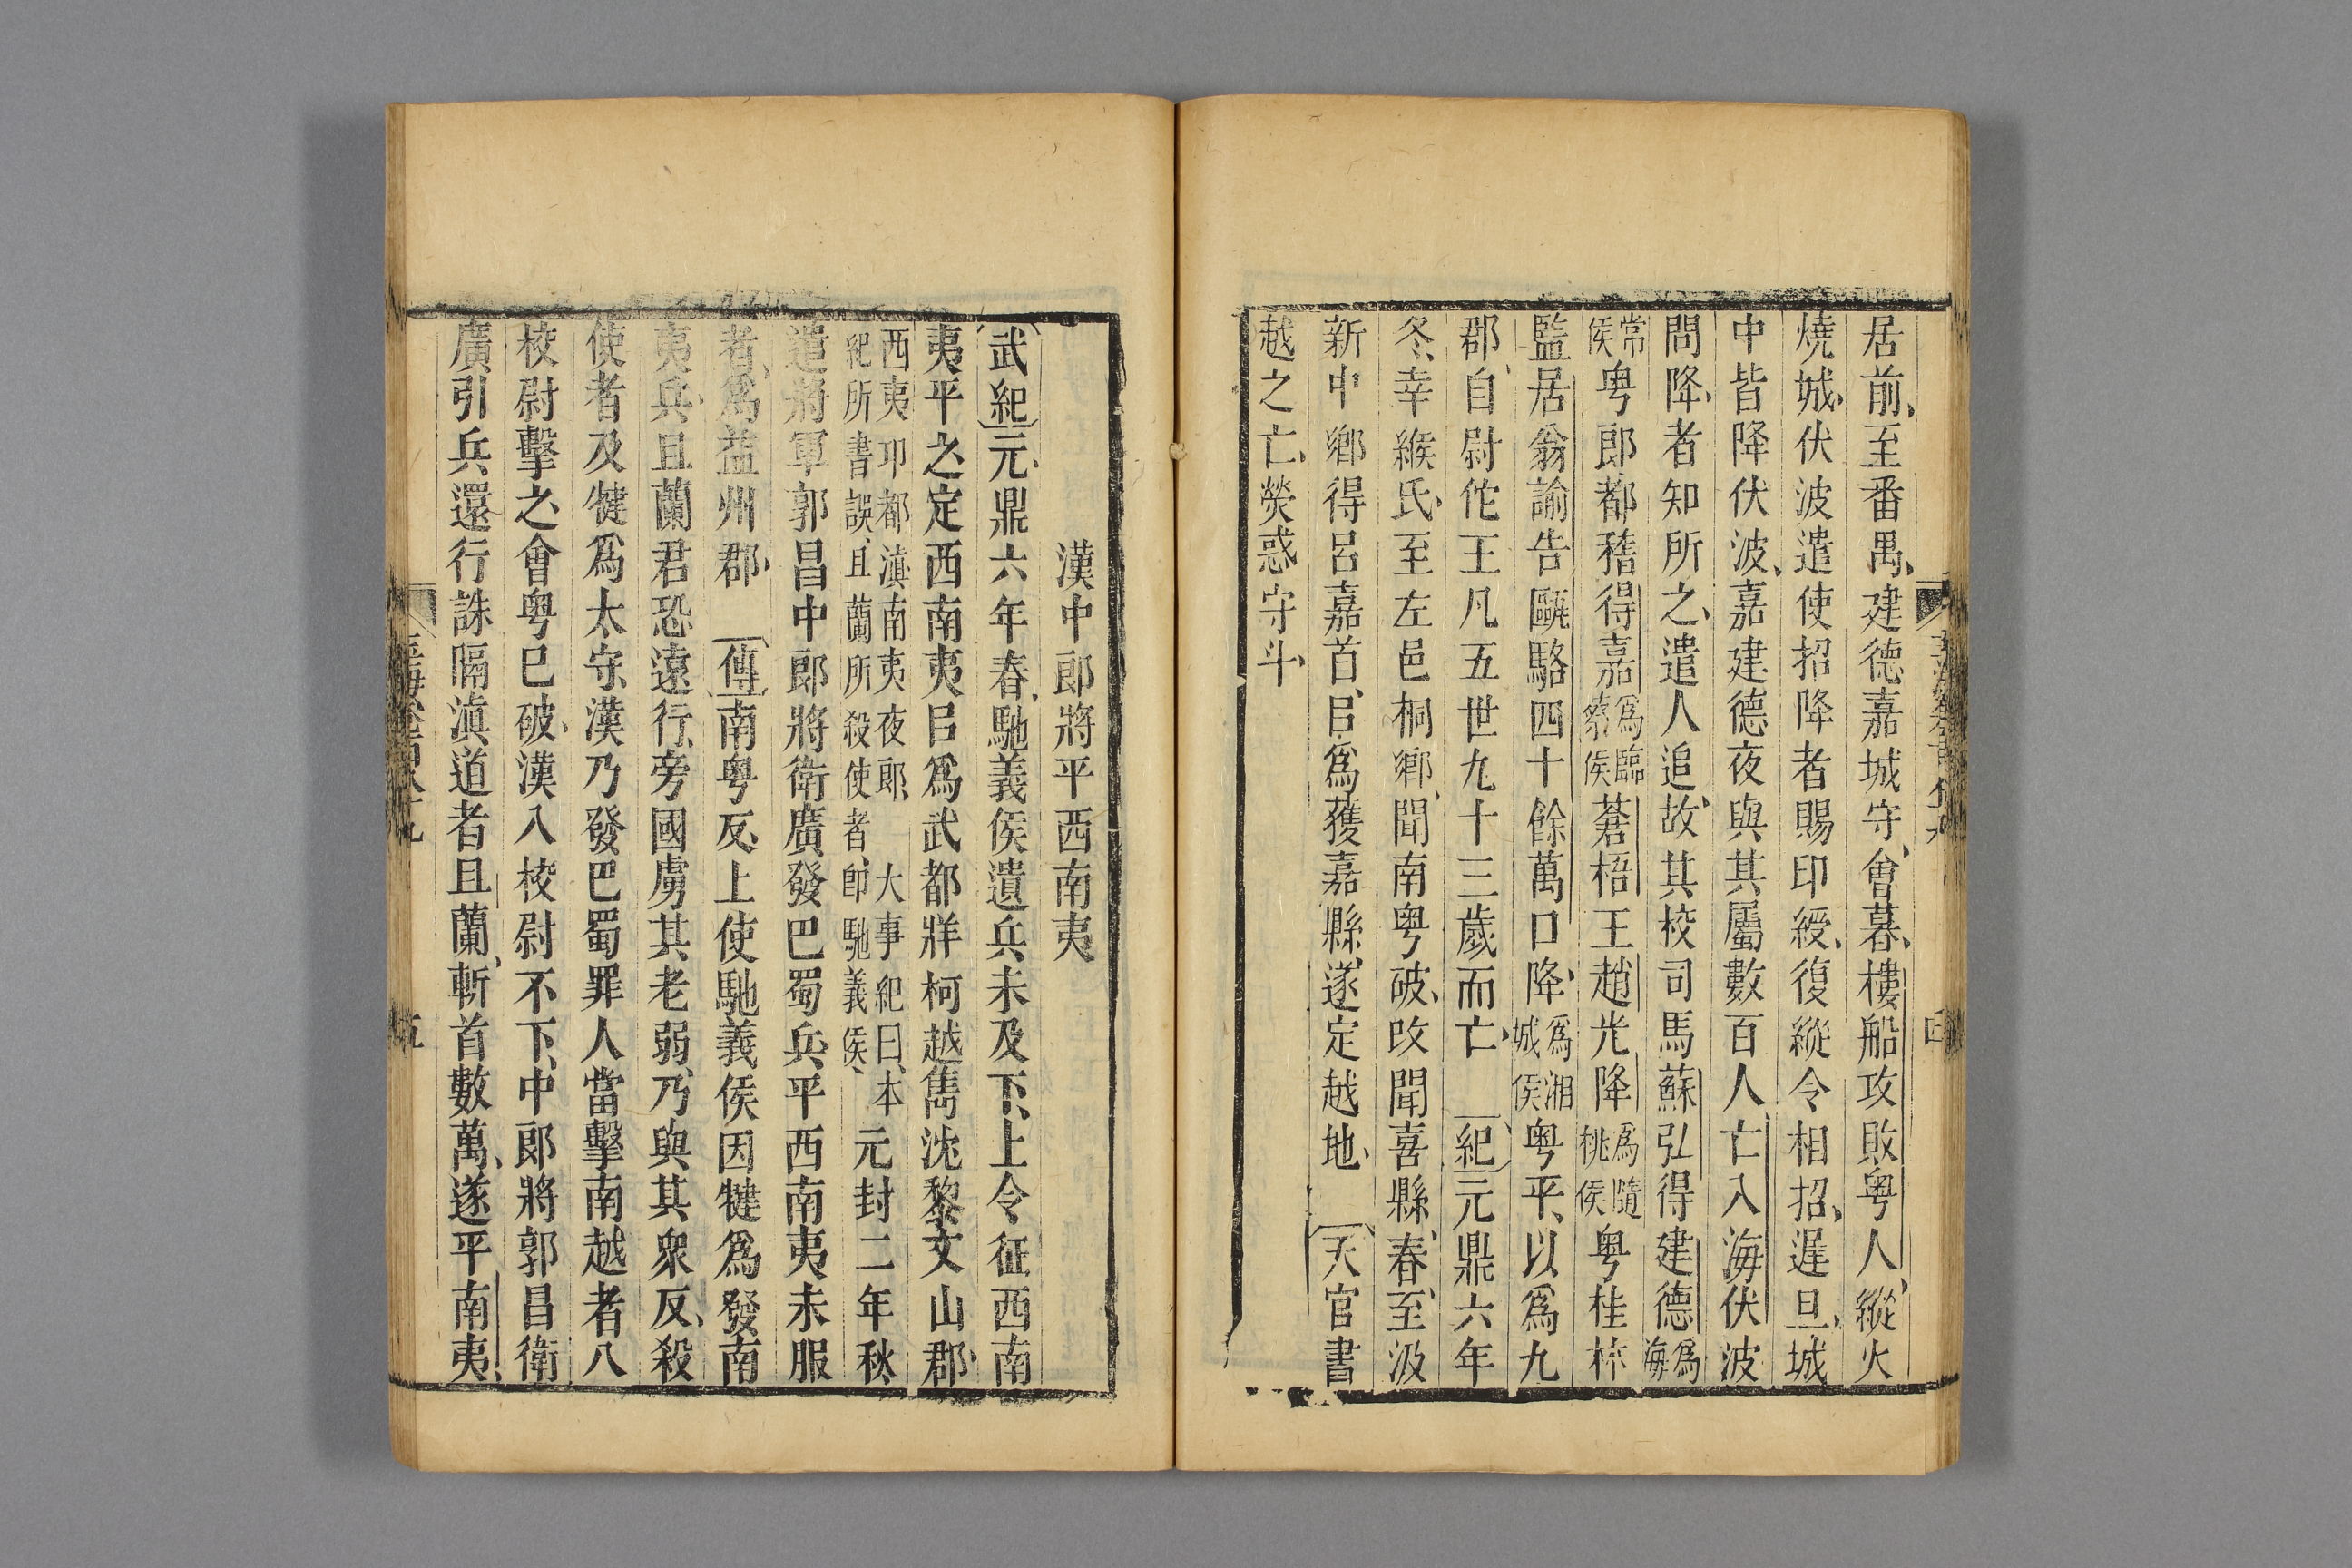 居前、至番禺、建德嘉城守、會暮、樓船攻敗粤人、縱火
燒城、伏波遣使招降者賜印綬、復縱令相招、遲旦、城
中皆降伏波、嘉建德夜與其屬數百人亡入海伏波
問降、者知所之、遣人追、故其校司馬蘇弘得建德爲海
常侯粤郎都稽得嘉爲臨蔡侯蒼梧王趙光降爲隨桃侯粤桂林
監居翁諭告甌駱四十餘萬口降、爲湘城侯粤平、以爲九
郡、自尉佗王凡五世九十三歲而亡、紀元鼎六年
冬、幸緱氏、至左邑桐鄉、聞南粤破、改聞喜縣、春、至汲
新中鄉得呂嘉首、㠯爲獲嘉縣、遂定越地、天官書
越之亡、熒惑守斗、
漢中郎將平西南夷
武紀元鼎六年春、馳義侯遺兵未及下、上令征西南
夷平之、定西南夷㠯爲武都牂柯越嶲沈黎文山郡、
西夷卭都滇南夷夜郎、大事紀曰、本
紀所書誤、且蘭所殺使者、卽馳義侯、元封二年秋、
遣將軍郭昌中郎將衛廣發巴蜀兵、平西南夷未服
者、爲益州郡、傳南粤反、上使馳義侯因犍爲發南
夷兵、且蘭君恐遠行、旁國虜其老弱、乃與其衆反、殺
使者及犍爲太守、漢乃發巴蜀罪人當擊南越者八
校尉擊之、會粤巳破、漢入校尉不下、中郎將郭昌衛
廣引兵還行誅隔滇道者且蘭、斬首數萬、遂平南夷、
五